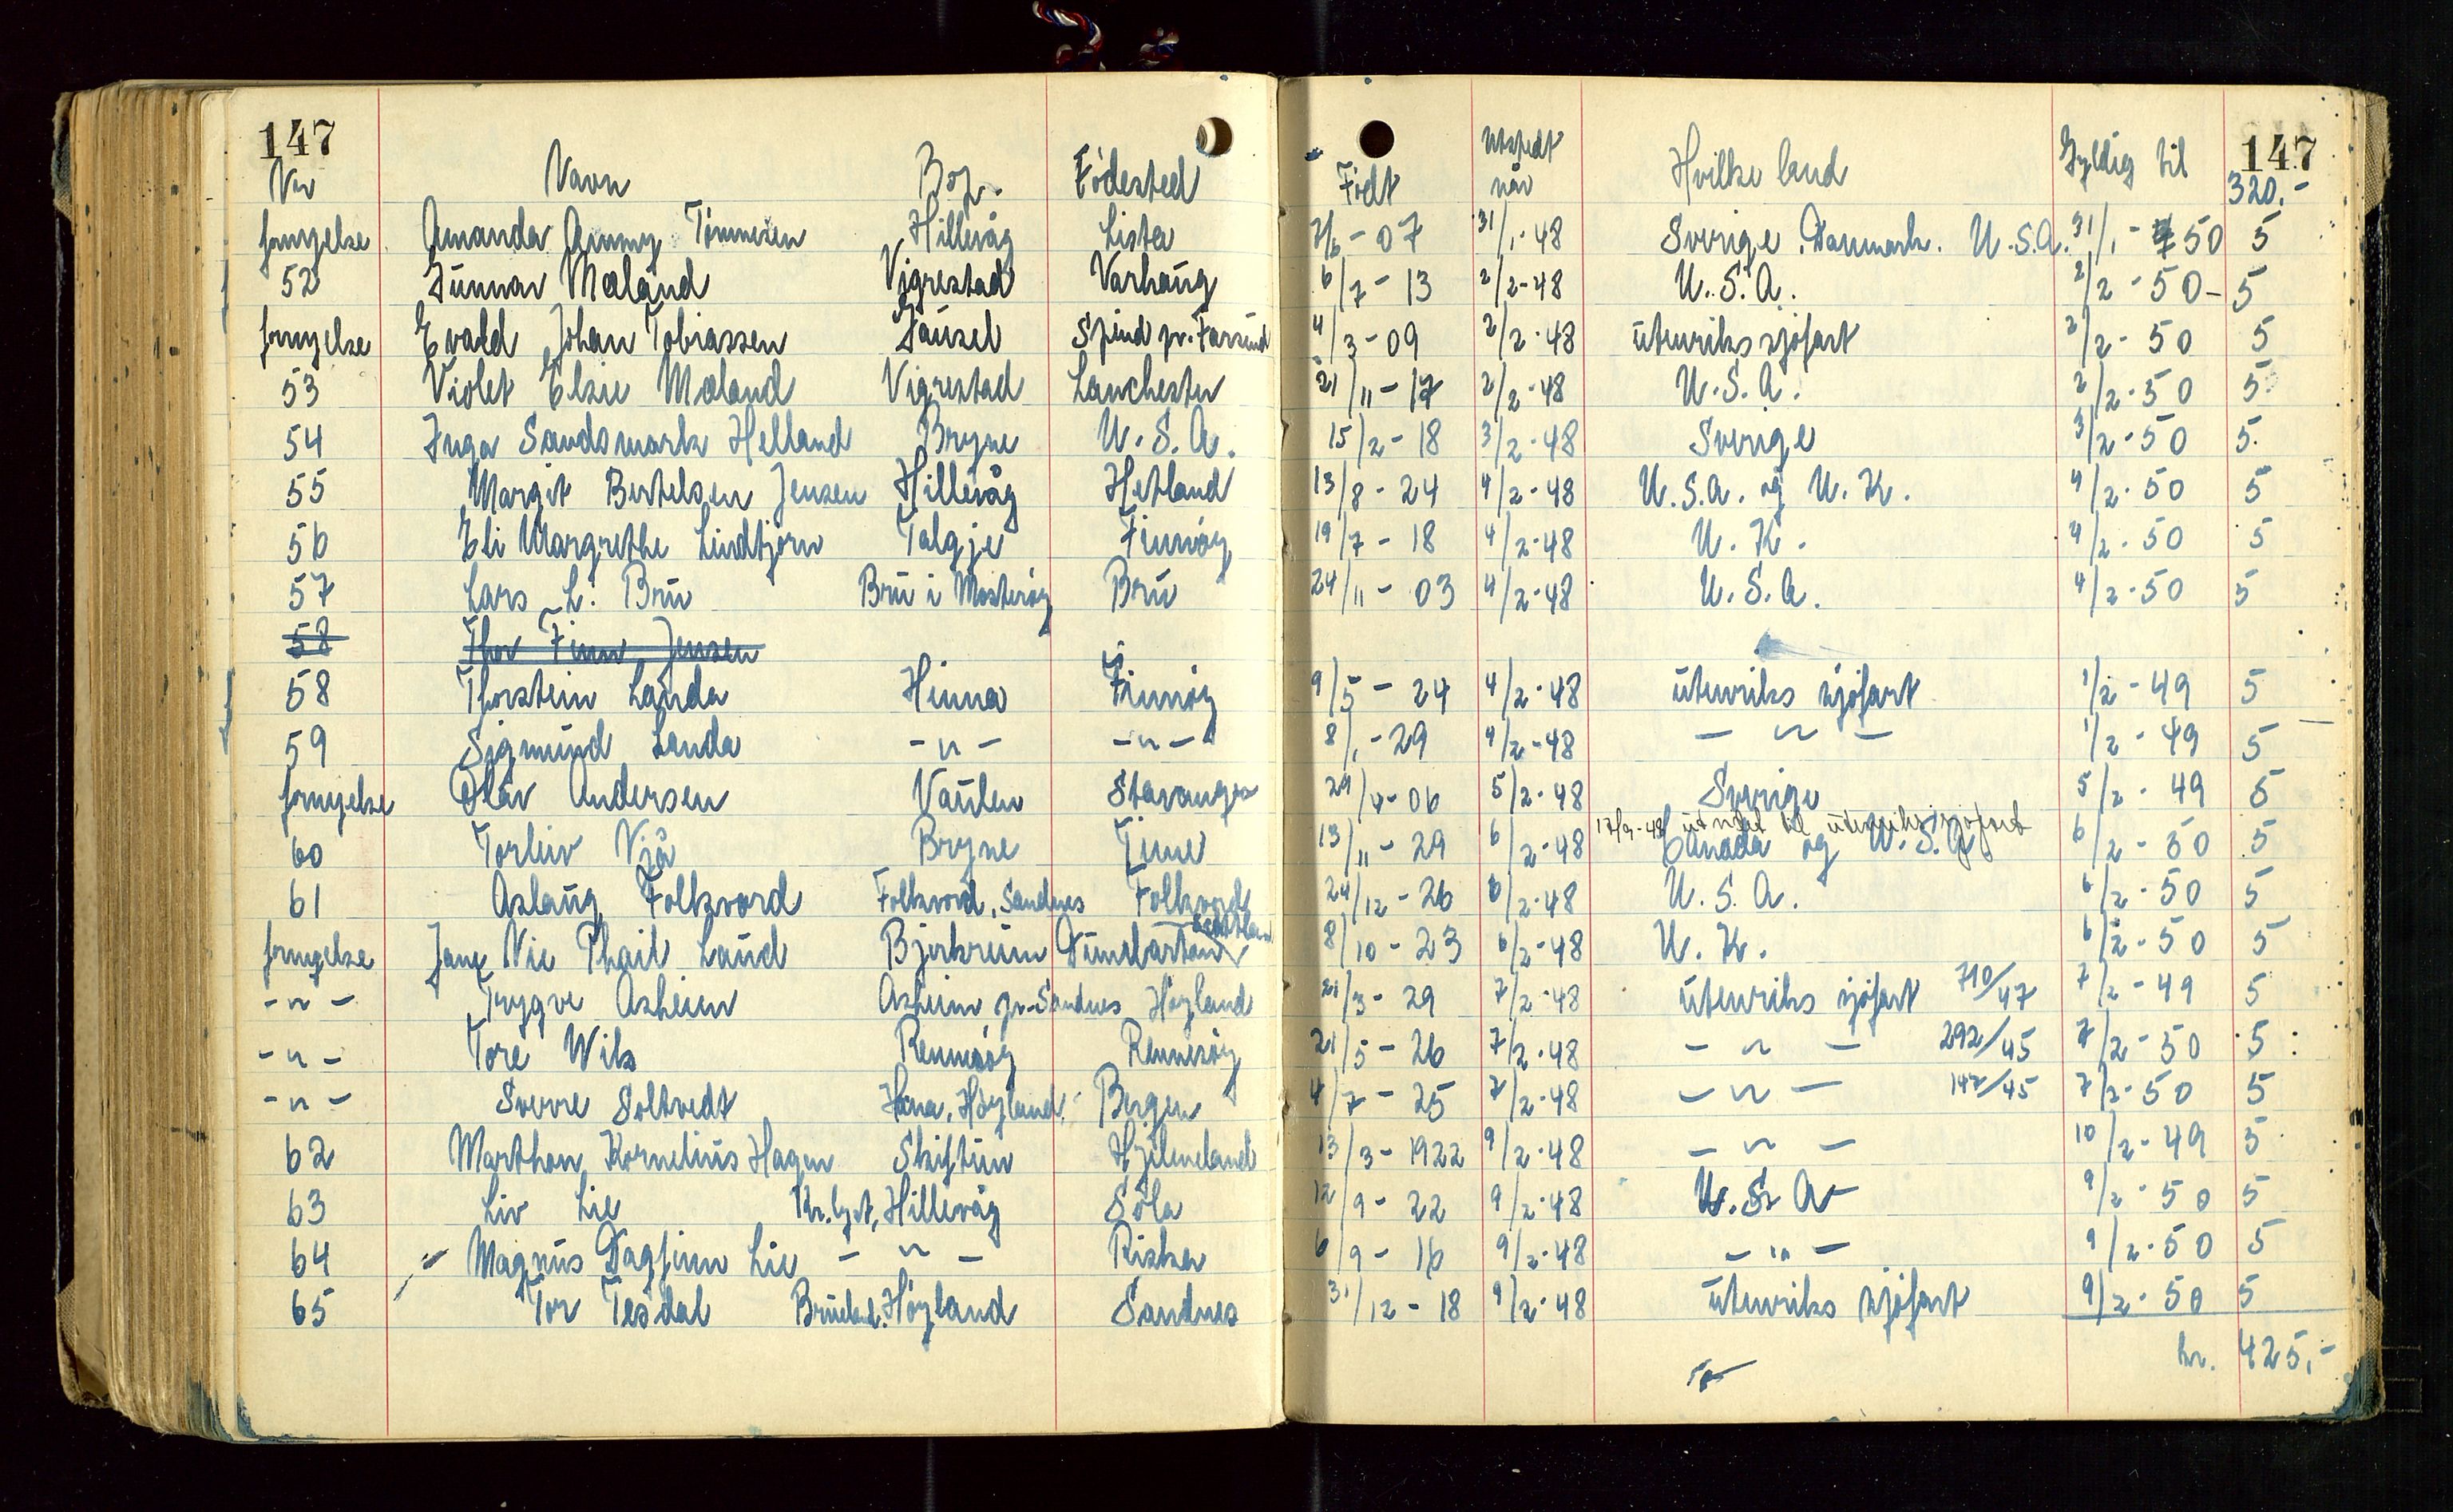 147 147
Nr Navn Bop. Fødested Født Utstedt når Hvilke land Gyldig til 320,-
fornyelse Amanda Ammy Tønnesen Hillevåg Lista 7/6 - 07 31/1 - 48 Sverige. Danmark. U.S.A. 31/1 - 50 5
52 Gunnar Mæland Vigrestad Varhaug 6/7 - 13 2/2 - 48 U.S.A. 2/2 - 50 - 5
fornyelse Evald Johan Tobiassen Gausel Spind pr. Farsund 4/3 - 09 2/2 - 48 utenriks sjøfart 2/2 - 50 5
53 Violet Elsie Mæland Vigrestad Lanchester 21/11 - 17 2/2 - 48 U.S.A. 2/2 - 50 5
54 Inga Sandsmark Helland Bryne U.S.A. 15/2 - 18 3/2 - 48 Sverige 3/2 - 50 5.
55 Margit Bertelsen Jensen Hillevåg Hetland 13/8 - 24 4/2 - 48 U.S.A. og U.K. 4/2 - 50 5
56 Eli Margrethe Lindtjørn Talgje Finnøy 19/7 - 18 4/2 - 48 U.K. 4/2 - 50 5
57 Lars L. Bru Bru i Mosterøy Bru 24/11 - 03 4/2 - 48 U.S.A. 4/2 - 50 5
58 Thor Finn Jensen
58 Thorstein Landa Hinna Finnøy 9/5 - 24 4/2 - 48 utenriks sjøfart 1/2 - 49 5
59 Sigmund Landa - " - - " - 8/1 - 29 4/2 - 48 - " - 1/2 - 49 5
fornyelse Olav Andersen Vaulen Stavanger 29/4 - 06 5/2 - 48 Sverige 5/2 - 49 5
17/9-48 utvidet til utenriks sjøfart
60 Torleiv Vjå Bryne Time 13/11 - 29 6/2 - 48 Canada og U.S.A. 6/2 - 50 5
61 Aslaug Folkvord Folkvord, Sandnes Folkvord 24/12 - 26 6/2 - 48 U.S.A. 6/2 - 50 5
fornyelse Jane Nic Phail Laud Bjerkreim Dumbarton Scottland 8/10 - 23 6/2 - 48 U.K. 6/2 - 50 5
- " - Trygve Asheim Asheim pr. Sandnes Høyland 21/3 - 29 7/2 - 48 utenriks sjøfart 710/47 7/2 - 49 5
- " - Tore Wik Rennesøy Rennesøy 21/5 - 26 7/2 - 48 - " - 292/45 7/2 - 50 5
- " - Sverre Soltvedt Hana, Høyland. Bergen 4/7 - 25 7/2 - 48 - " - 147/45 7/2 - 50 5
62 Marthon Kornelius Hagen Skiftun Hjelmeland 13/3 - 1922 9/2 - 48 - " - 10/2 - 49 5
63 Liv Lie Kr. lyst, Hillevåg Sola 12/9 - 22 9/2 - 48 U.S.A 9/2 - 50 5
64 Magnus Dagfinn Lie - " - Riska 6/9 - 16 9/2 - 48 - " - 9/2 - 50 5
65 Tor Tesdal Brueland. Høyland Sandnes 31/12 - 18 9/2 - 48 utenriks sjøfart 9/2 - 50 5
kr. 425,-